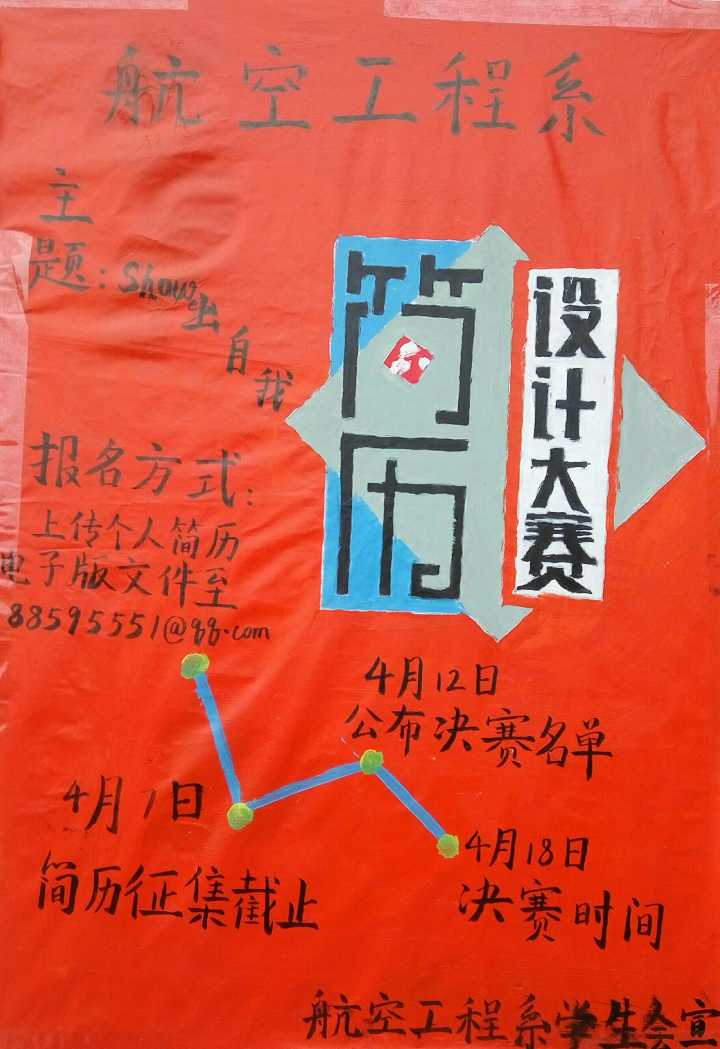 航空工程系
主
题：Show出自我
简历
设计大赛
报名方式：
上传个人简历
电子版文件至
88595551@qq.com
4月12日
公布决赛名单
4月7日
简历征集截止
4月18日
决赛时间
航空工程系学生会宣